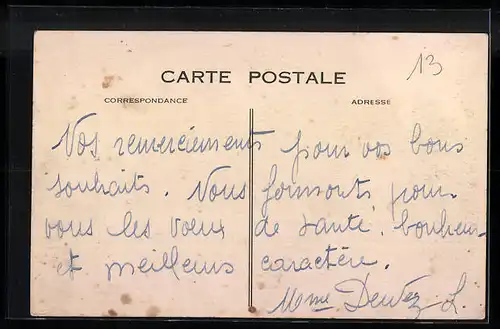 13
CARTE POSTALE
CORRESPONDANCE
ADRESSE
Vos remerciements pour vos bons
souhaits. Nous formons, pour
vous les vœux de santé, bonheur
et meilleurs caractère.
Mme Dewez L.